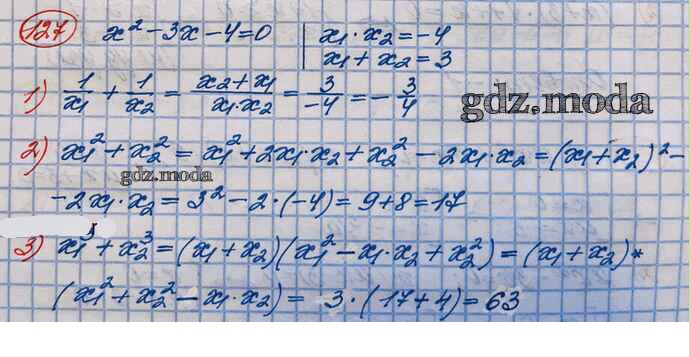 127 x² - 3x - 4 = 0 | x₁ · x₂ = -4
x₁ + x₂ = 3
1) 1/x₁ + 1/x₂ = (x₂ + x₁)/(x₁ · x₂) = 3/-4 = - 3/4
gdz.moda
2) x₁² + x₂² = x₁² + 2x₁ · x₂ + x₂² - 2x₁ · x₂ = (x₁ + x₂)² -
gdz.moda
- 2x₁ · x₂ = 3² - 2 · (-4) = 9 + 8 = 17
3) x₁³ + x₂³ = (x₁ + x₂)(x₁² - x₁ · x₂ + x₂²) = (x₁ + x₂) *
(x₁² + x₂² - x₁ · x₂) = 3 · (17 + 4) = 63